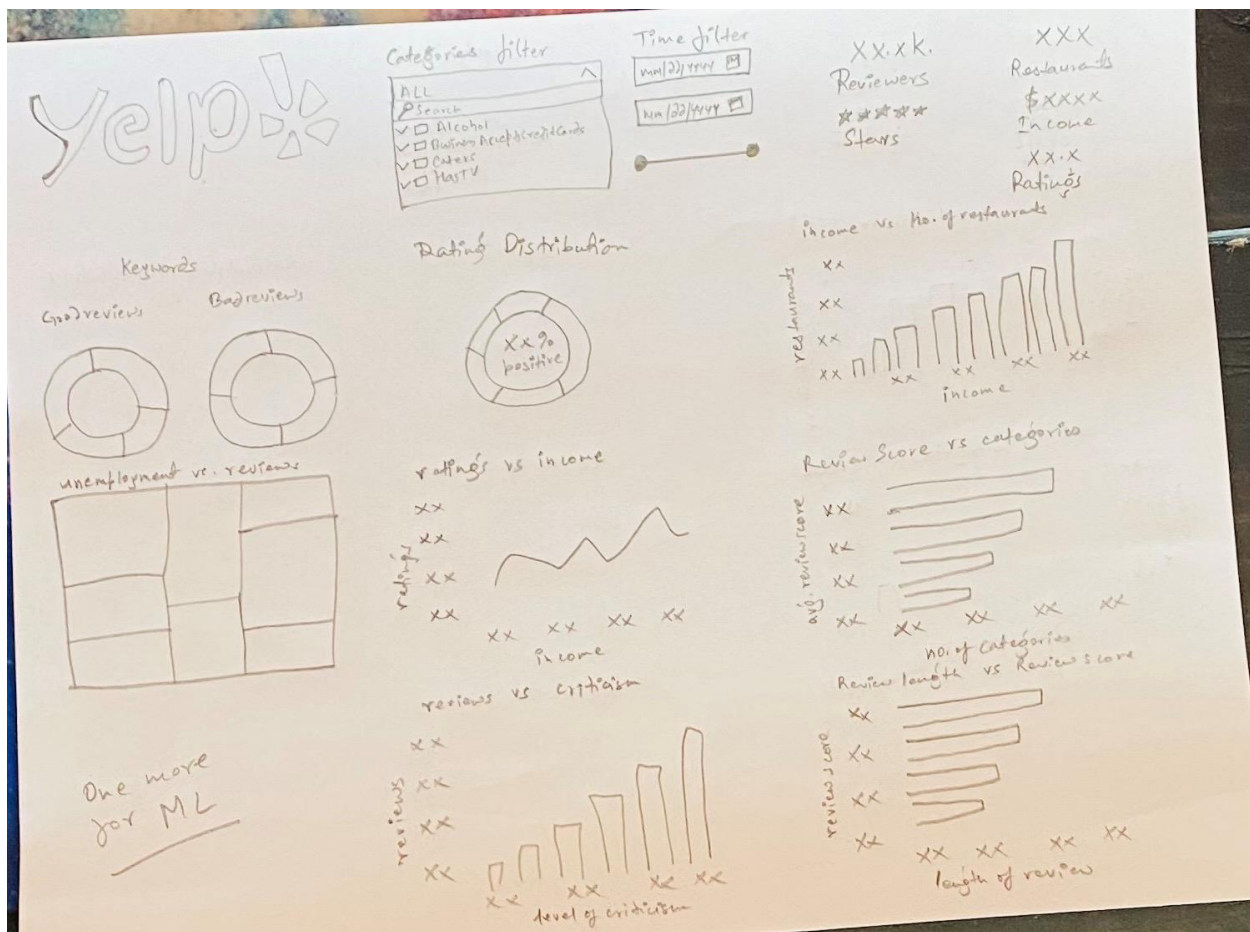 yelp
Categories filter
ALL
Search
Alcohol
Caters
HasTV
Time filter
mm/dd/yyyy
mm/dd/yyyy
XX.XK.
Reviewers
Stars
XXX
Restaurants
$XXXX
Income
XX.X
Ratings
Keywords
Good reviews
Bad reviews
Rating Distribution
XX%
positive
income vs No. of restaurants
restaurants
XX
XX
XX
XX
XX XX XX
income
unemployment vs. reviews
ratings vs income
ratings
XX
XX
XX
XX
XX XX XX XX
income
Review Score vs categories
avg. review score
XX
XX
XX
XX
XX XX XX XX
no. of categories
reviews vs criticism
reviews
XX
XX
XX
XX
XX XX XX XX
level of criticism
Review length vs Review score
review score
XX
XX
XX
XX
XX XX XX XX
length of review
One more
for ML